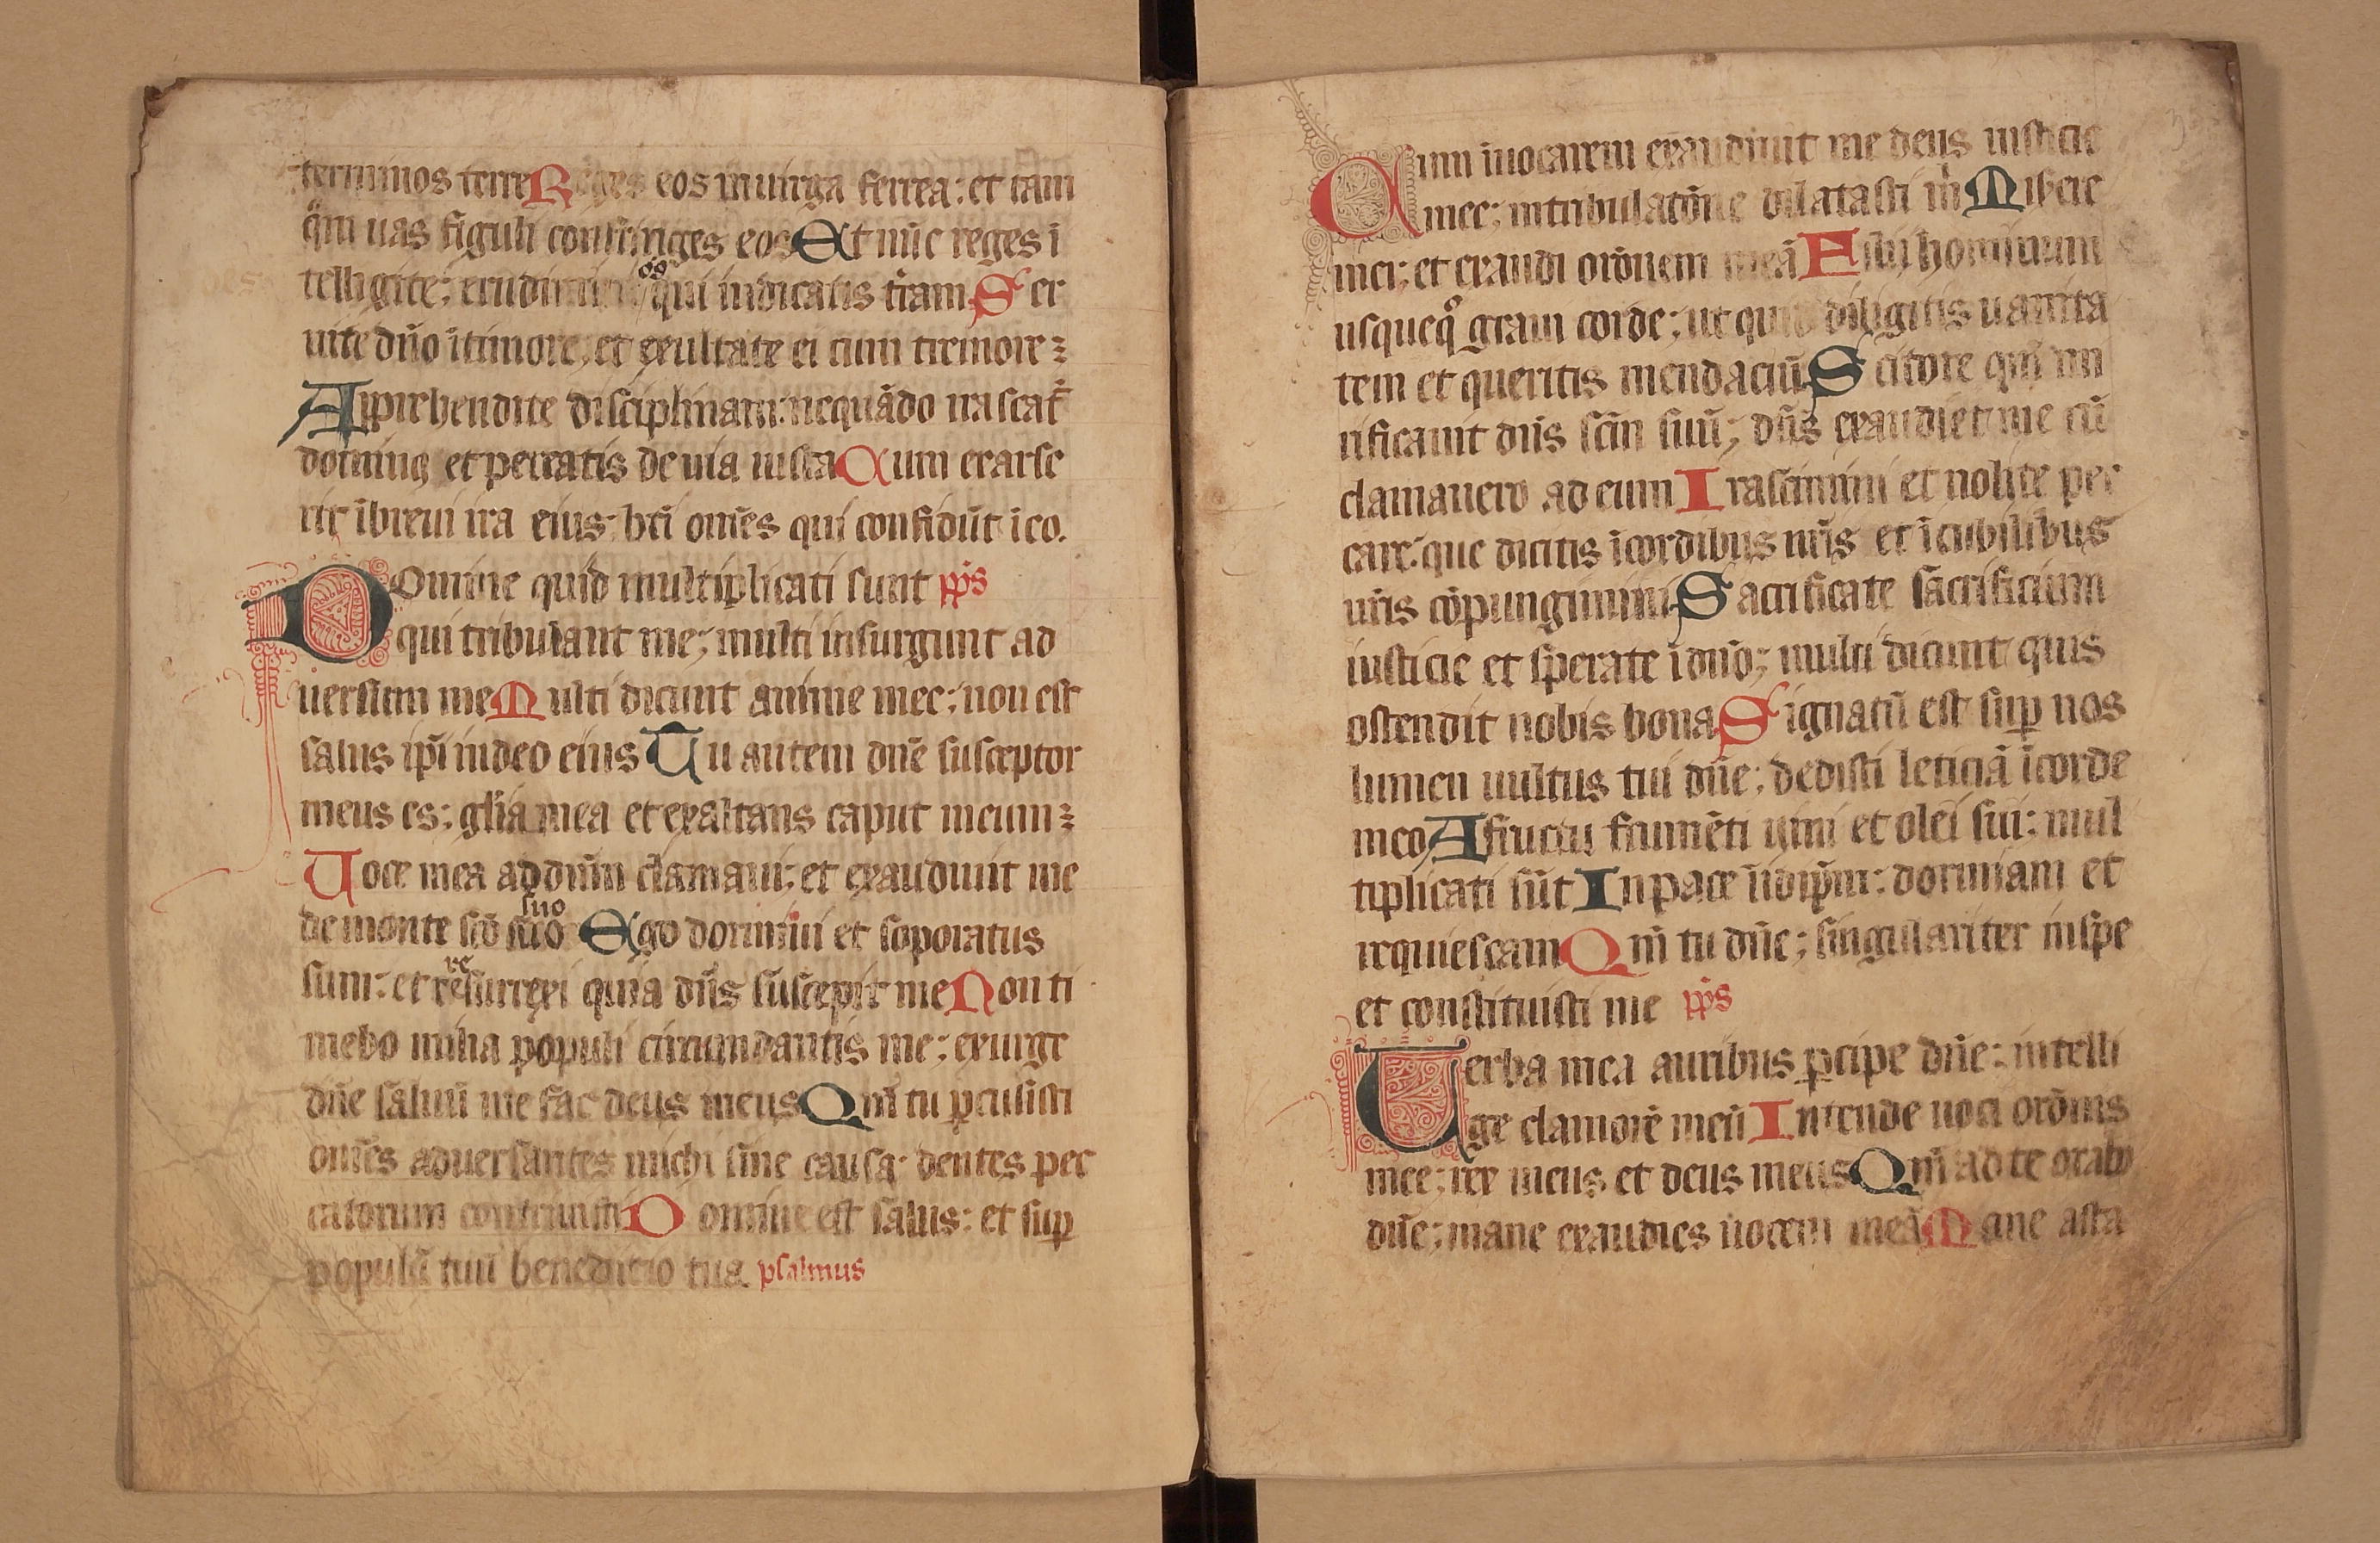 terminos terre Reges eos in uirga ferrea: et tam
qͦm uas figuli confringes eos Et nūc reges ī
telligite: erudimini os qui iudicatis t̄ram Ser
uite dn̄o ītimore, et exultate ei cum tremore:
Apprehendite disciplinam: nequādo irascat᷑
dominꝯ et pereatis de uia iusta Cum exarse
rit ībreui ira eius: bt̄i om̄es qui confidūt ī eo.
Domine quid multiplicati sunt pp̄s
qui tribulant me; multi insurgunt ad
uersum me Multi dicunt anime mee: non est
salus ip̄i indeo eius Tu autem dn̄e susceptor
meus es: gl̄ia mea et exaltans caput meum:
Uoce mea ad dn̄m clamaui; et exaudiuit me
suo
de monte sc̄o suo Ego dormiui et soporatus
re
sum: et resurrexi quia dn̄s suscepit me Non ti
mebo milia populi circumdantis me: exurge
dn̄e saluū me fac deus meus Qm̄ tu ꝑcusisti
om̄es aduersantes michi sine causa: dentes pec
catorum contriuisti Domine est salus: et sup̄
populū tuū benedictio tua psalmus
3
Cum inuocarem exaudiuit me deus iusticie
mee: intribulatōne dilatasti m̄ Misere
mei: et exaudi orōnem meā Filij hominum
usquequͦ graui corde: ut quid diligitis uanita
tem et queritis mendaciū Scitote qm̄ mi
rificauit dn̄s sc̄m suū; dn̄s exaudiet me cū
clamauero ad eum Irascimini et nolite pec
care: que dicitis īcordibus ur̄is et īcubilibus
ur̄is cōpungimini Sacrificate sacrificium
iusticie et sperate īdn̄o; multi dicunt quis
ostendit nobis bona Signatū est sup̄ nos
lumen uultus tui dn̄e; dedisti leticiā īcorde
meo A fructu frumēti uini et olei sui: mul
tiplicati sūt In pace īidip̄m: dormiam et
requiescam Qm̄ tu dn̄e; singulariter inspe
et constituisti me pp̄s
Uerba mea auribus ꝑcipe dn̄e: intelli
ge clamorē meū Intende uoci orōnis
mee: rex meus et deus meus Qm̄ ad te orabo
dn̄e; mane exaudies uocem meā Mane asta